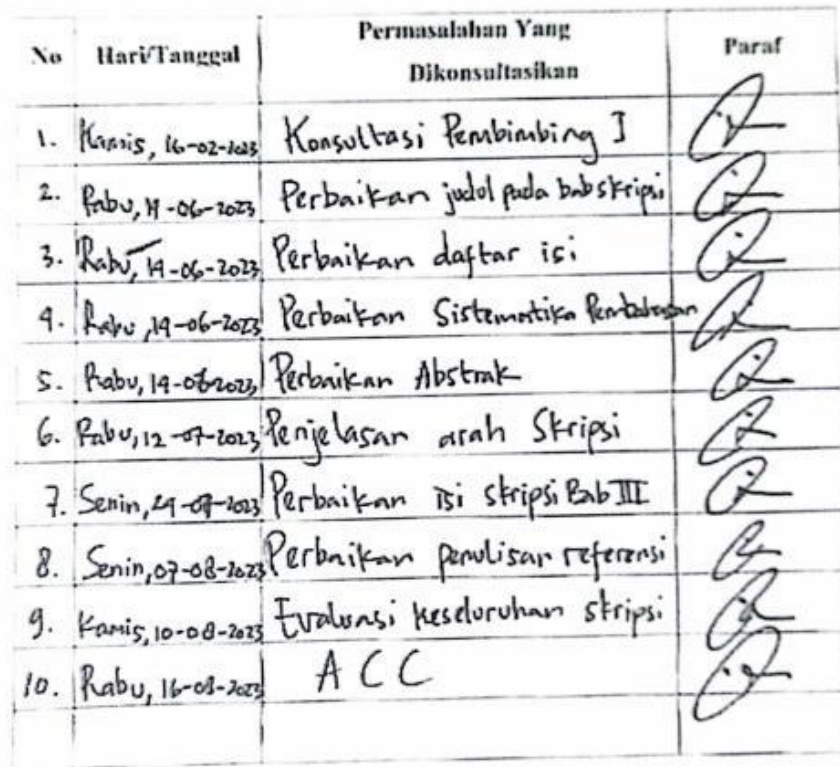 No Hari/Tanggal Permasalahan Yang Dikonsultasikan Paraf
1. Kamis, 16-02-2023 Konsultasi Pembimbing I
2. Rabu, 14-06-2023 Perbaikan judul pada bab skripsi
3. Rabu, 14-06-2023 Perbaikan daftar isi
4. Rabu, 14-06-2023 Perbaikan Sistematika Pembahasan
5. Rabu, 14-06-2023 Perbaikan Abstrak
6. Rabu, 12-07-2023 Penjelasan arah Skripsi
7. Senin, 24-07-2023 Perbaikan isi skripsi Bab III
8. Senin, 07-08-2023 Perbaikan penulisan referensi
9. Kamis, 10-08-2023 Evaluasi keseluruhan skripsi
10. Rabu, 16-08-2023 ACC